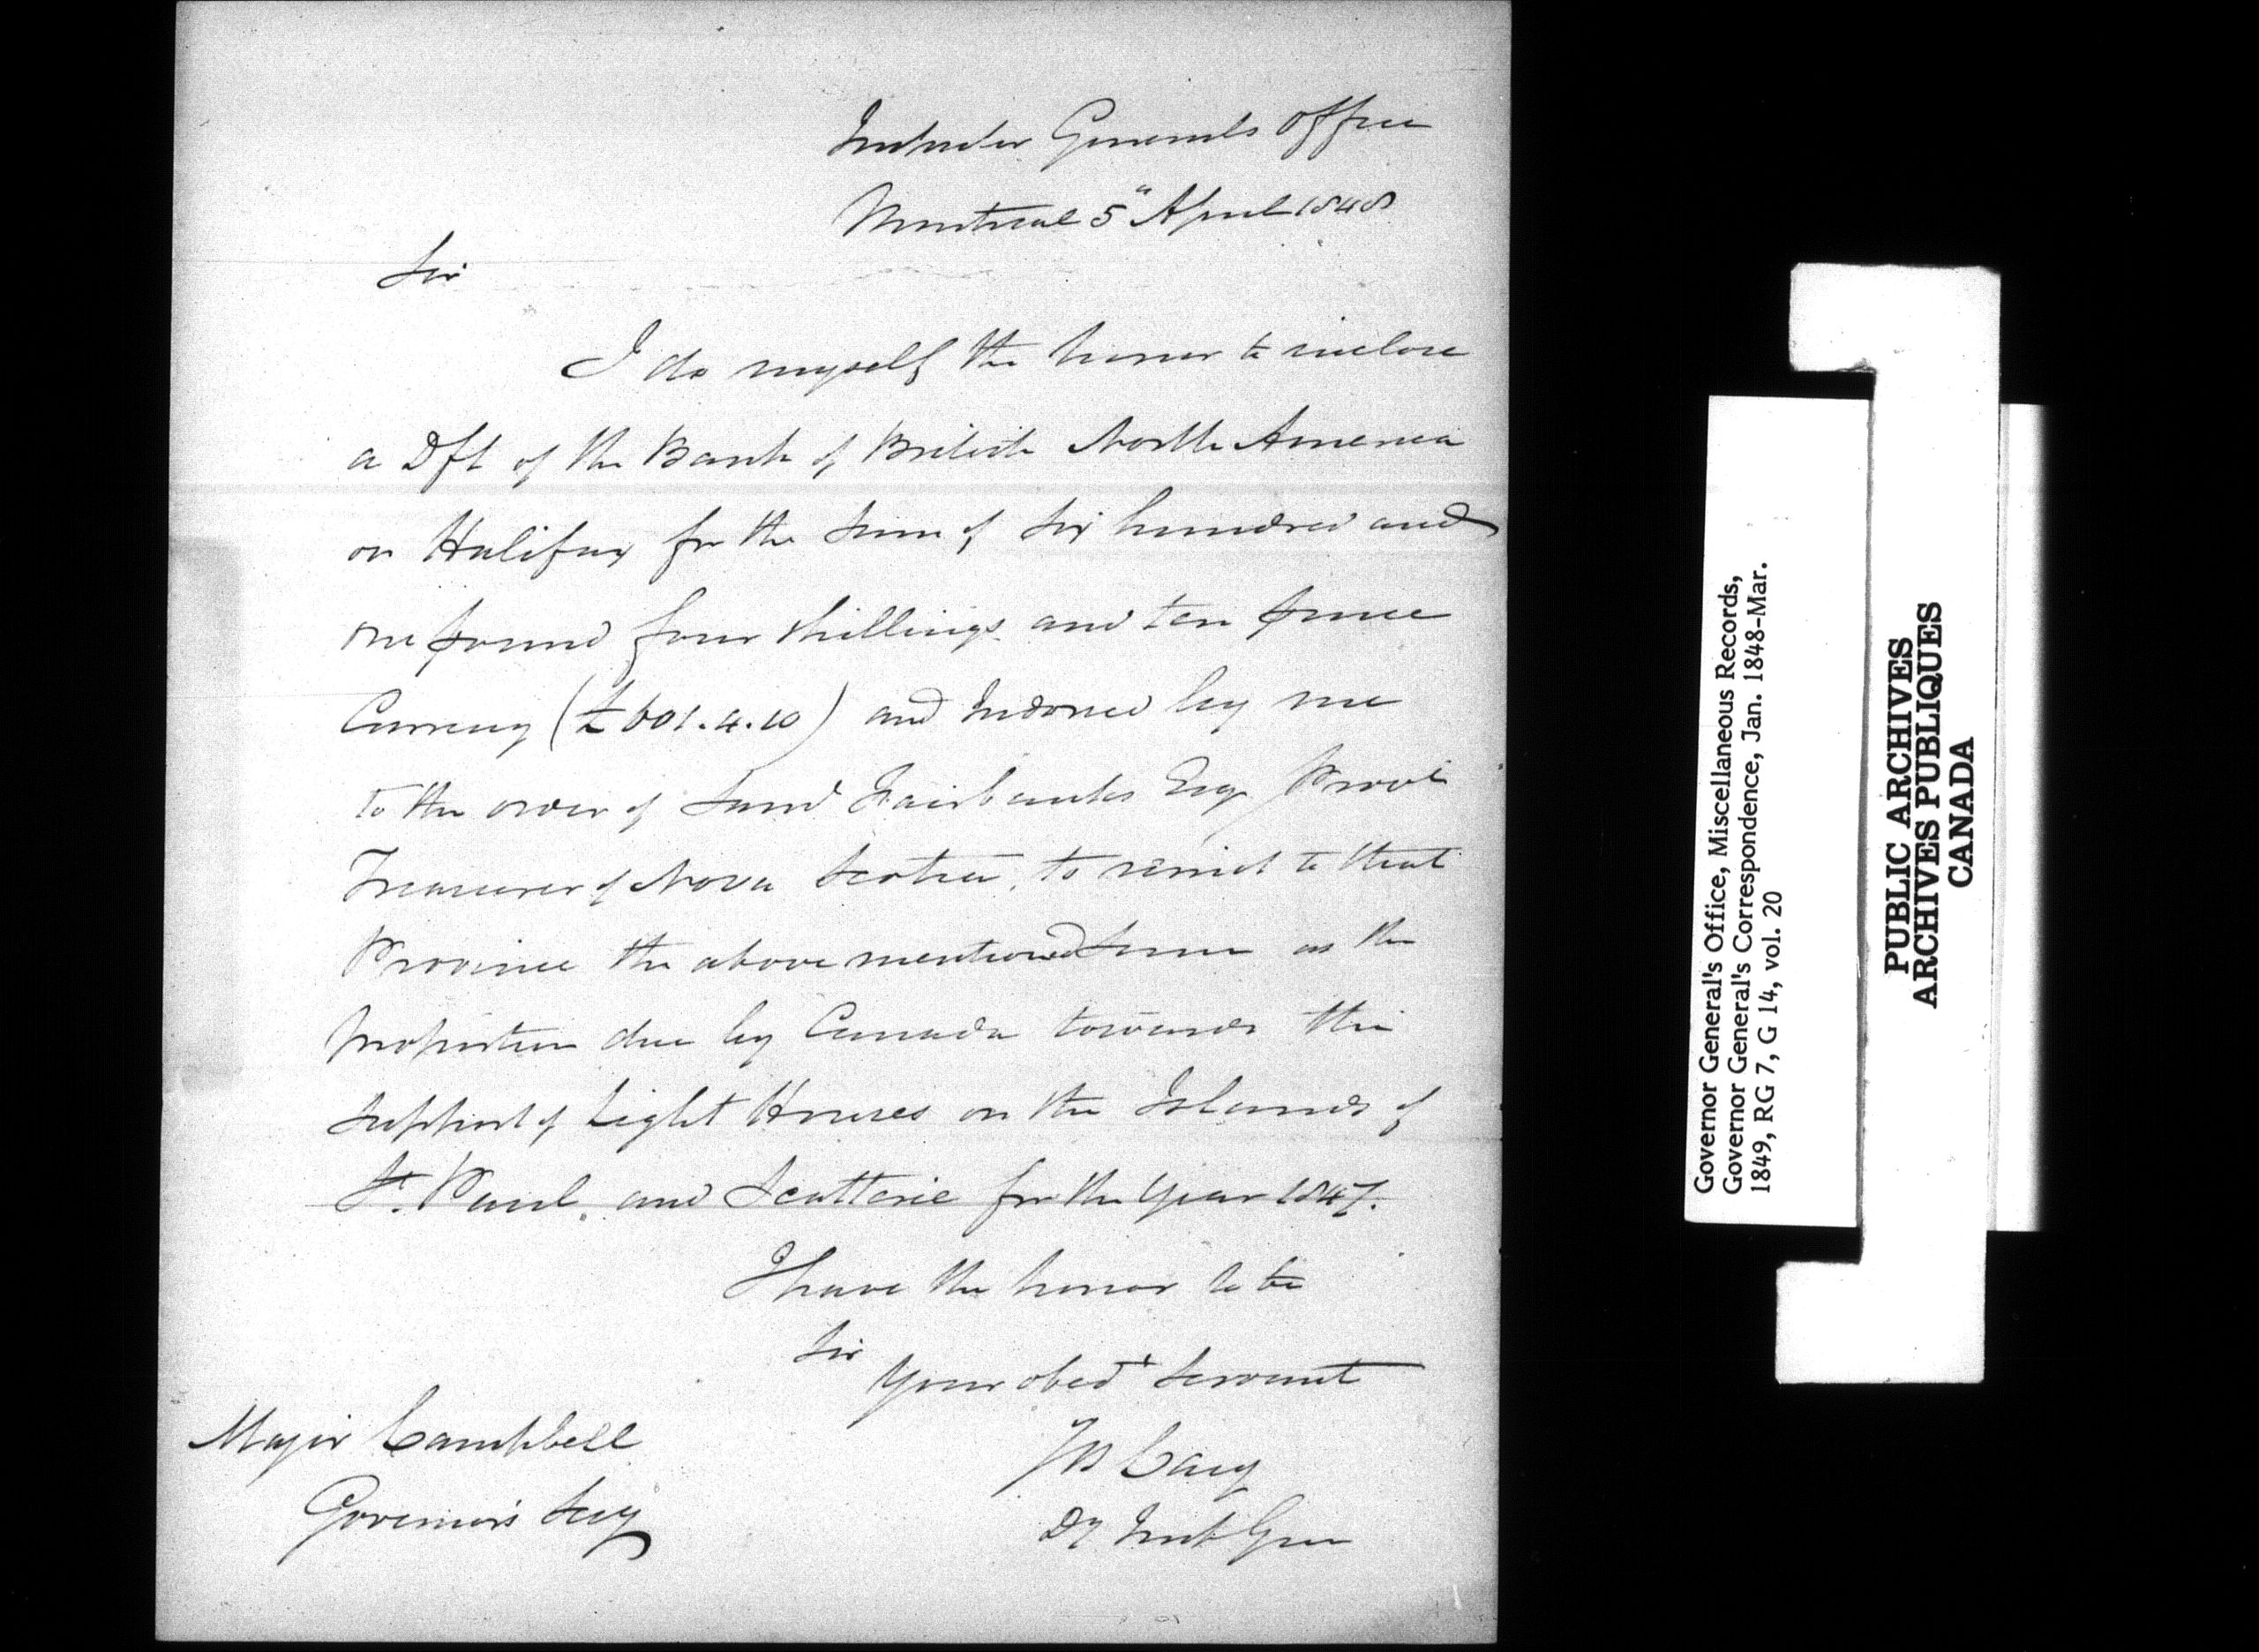 Inspector Generals Office
Montreal 5" April 1848
Sir
I do myself the honor to inclose
a Dft of the Bank of British North America
on Halifax for the Sum of Six hundred and
one pound four shillings and ten pence
Currency (£601.4.10) and Indorsed by me
to the order of Saml Fairbanks Esqr Provl
Treasurer of Nova Scotia, to remit to that
Province the above mentioned Sum as the
proportion due by Canada towards the
Support of Light Houses on the Islands of
St. Paul, and Scatterie for the Year 1847.
I have the honor to be
Sir
Your obedt Servant
Jos Cary
Dy Inst Gen
Major Campbell
Governors Secy
Governor General's Office, Miscellaneous Records,
Governor General's Correspondence, Jan. 1848-Mar.
1849, RG 7, G 14, vol. 20
PUBLIC ARCHIVES
ARCHIVES PUBLIQUES
CANADA